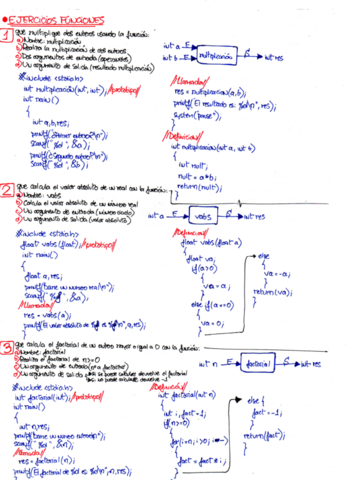 EJERCICIOS FUNCIONES
1 que multiplique dos enteros usando la función:
a) Nombre: multiplicación
b) Realiza la multiplicación de dos enteros
c) Dos argumentos de entrada (operandos)
d) Un argumento de salida (resultado multiplicación)
int a E
int b E
multiplicación
S int res
#include <stdio.h>
int multiplicacion(int, int); //prototipo//
int main()
{
int a,b,res;
scanf("%d", &a);
scanf("%d", &b);
//Llamada//
res = multiplicacion(a,b);
printf("El resultado es %d\n", res);
system("pause");
//Definicion//
int multiplicacion(int a, int b)
{
int mult;
mult = a*b;
return(mult);
}
2 que calcula el valor absoluto de un real con la función:
a) Nombre: vabs
b) Calcula el valor absoluto de un número real
c) Un argumento de entrada (número leído)
d) Un argumento de salida (valor absoluto)
int a E
vabs
S int res
#include <stdio.h>
float vabs(float); //prototipo//
int main()
{
float a, res;
printf("Dame un número real\n");
scanf("%f", &a);
//Llamada//
res = vabs(a);
printf("El valor absoluto de %f es %f\n", a, res);
}
//Definicion//
float vabs(float a)
{
float va;
if(a>0)
{
va = a;
}
else if(a==0)
{
va = 0;
}
else
{
va = -a;
}
return(va);
}
3 que calcula el factorial de un entero mayor o igual a 0 con la función:
a) Nombre: factorial
b) Realiza el factorial de n>=0
c) Un argumento de entrada (nº a factorizar)
d) Un argumento de salida
int n E
factorial
S int res
#include <stdio.h>
int factorial(int); //prototipo//
int main()
{
int n,res;
printf("Dame un número entero\n");
scanf("%d", &n);
//Llamada//
res = factorial(n);
printf("El factorial de %d es %d\n", n, res);
//Definicion//
int factorial(int n)
{
int i, fact=1;
if(n>=0)
{
for(i=n; i>0; i--)
{
fact = fact * i;
}
else {
fact = -1;
}
return(fact);
}